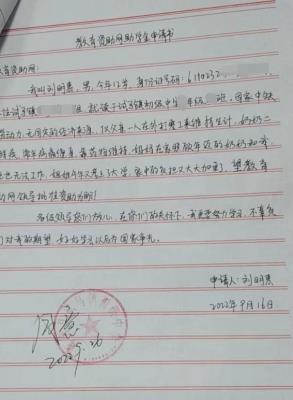 教育资助网助学金申请书
教育资助网:
我叫刘明焘,男,今年12岁,身份证号码:6190232
住试子镇 ,就读于试子镇初级中 年级 班,因家中缺
劳动力,无固定的经济来源,仅父亲一人在外打零工来维持生计,奶奶二
残疾,常年病痛缠身,靠药物维持,妈妈在家照顾年迈的奶奶和我
也无法工作,姐姐今年又考上了大学,家中的负担又大大加重了,望教育
助网领导批准资助为盼!
各位领导您们放心,在你们的关怀下,我更要努力学习,不辜负
们对我的期望,好好学习以后为国家争光。
申请人:刘明焘
2022年9月16日
同意
2022.9.20